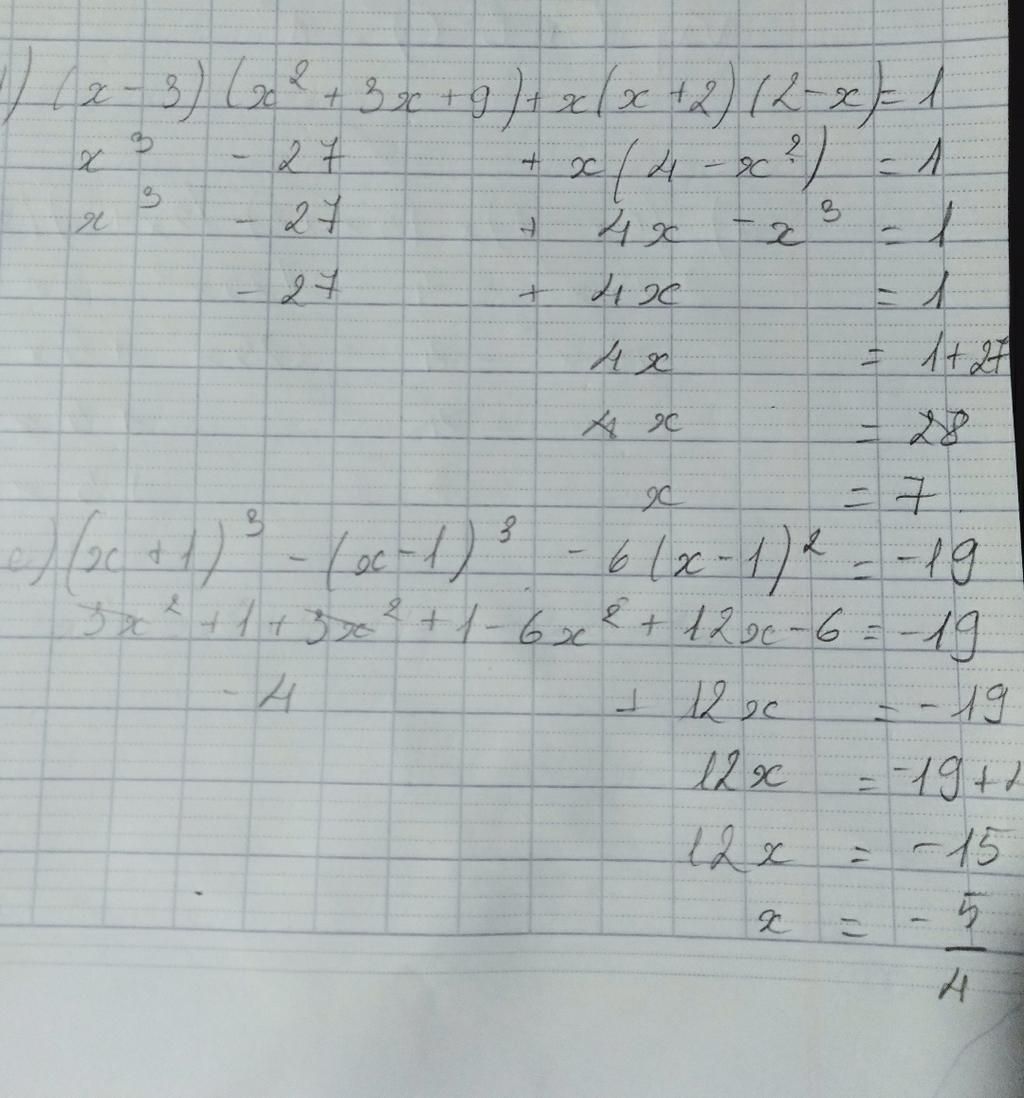 ) (x - 3) (x² + 3x + 9) + x(x + 2) (2 - x) = 1
x³ - 27 + x(4 - x²) = 1
x³ - 27 + 4x - x³ = 1
- 27 + 4x = 1
4x = 1 + 27
4x = 28
x = 7
c) (x + 1)³ - (x - 1)³ - 6(x - 1)² = -19
3x² + 1 + 3x² + 1 - 6x² + 12x - 6 = -19
- 4 + 12x = - 19
12x = -19 +
12x = -15
x = - 5/4